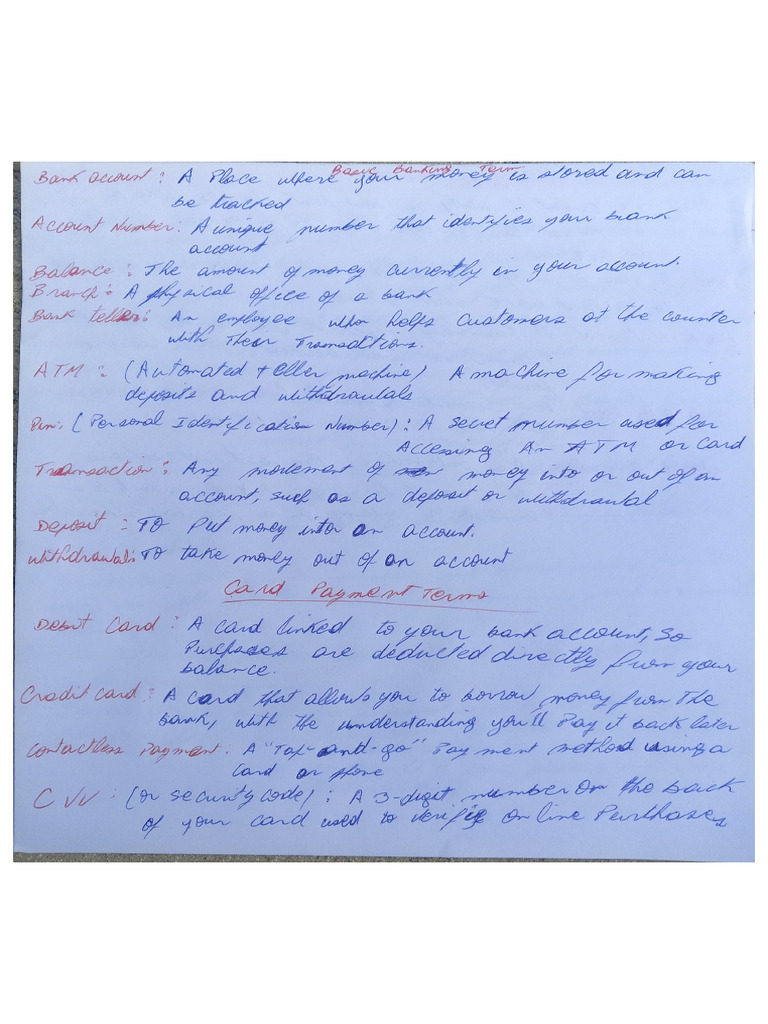 Basic Banking Term
Bank account : A Place where your money is stored and can
be tracked
Account Number : A unique number that identifies your brank
account
Balance : The amount of money currently in your account.
Branch : A physical office of a bank
Bank teller : An employee who helps customers at the counter
with their Transactions.
ATM : (Automated teller machine) A machine for making
deposits and withdrawals
Pin : (Personal Identification Number) : A secret number used for
Accessing An ATM or card
Transaction : Any movement of money into or out of an
account, such as a deposit or withdrawal
Deposit : To Put money into an account.
Withdrawal : To take money out of an account
Card Payment Terms
Debit Card : A card linked to your bank account, so
Purchases are deducted directly from your
balance.
Credit card : A card that allows you to borrow money from The
bank, with the understanding you'll Pay it back later
Contactless Payment : A "Tap-and-go" Payment method using a
Card or phone
CVV : (or security code) : A 3-digit number on the back
of your card used to verify on line Purchases